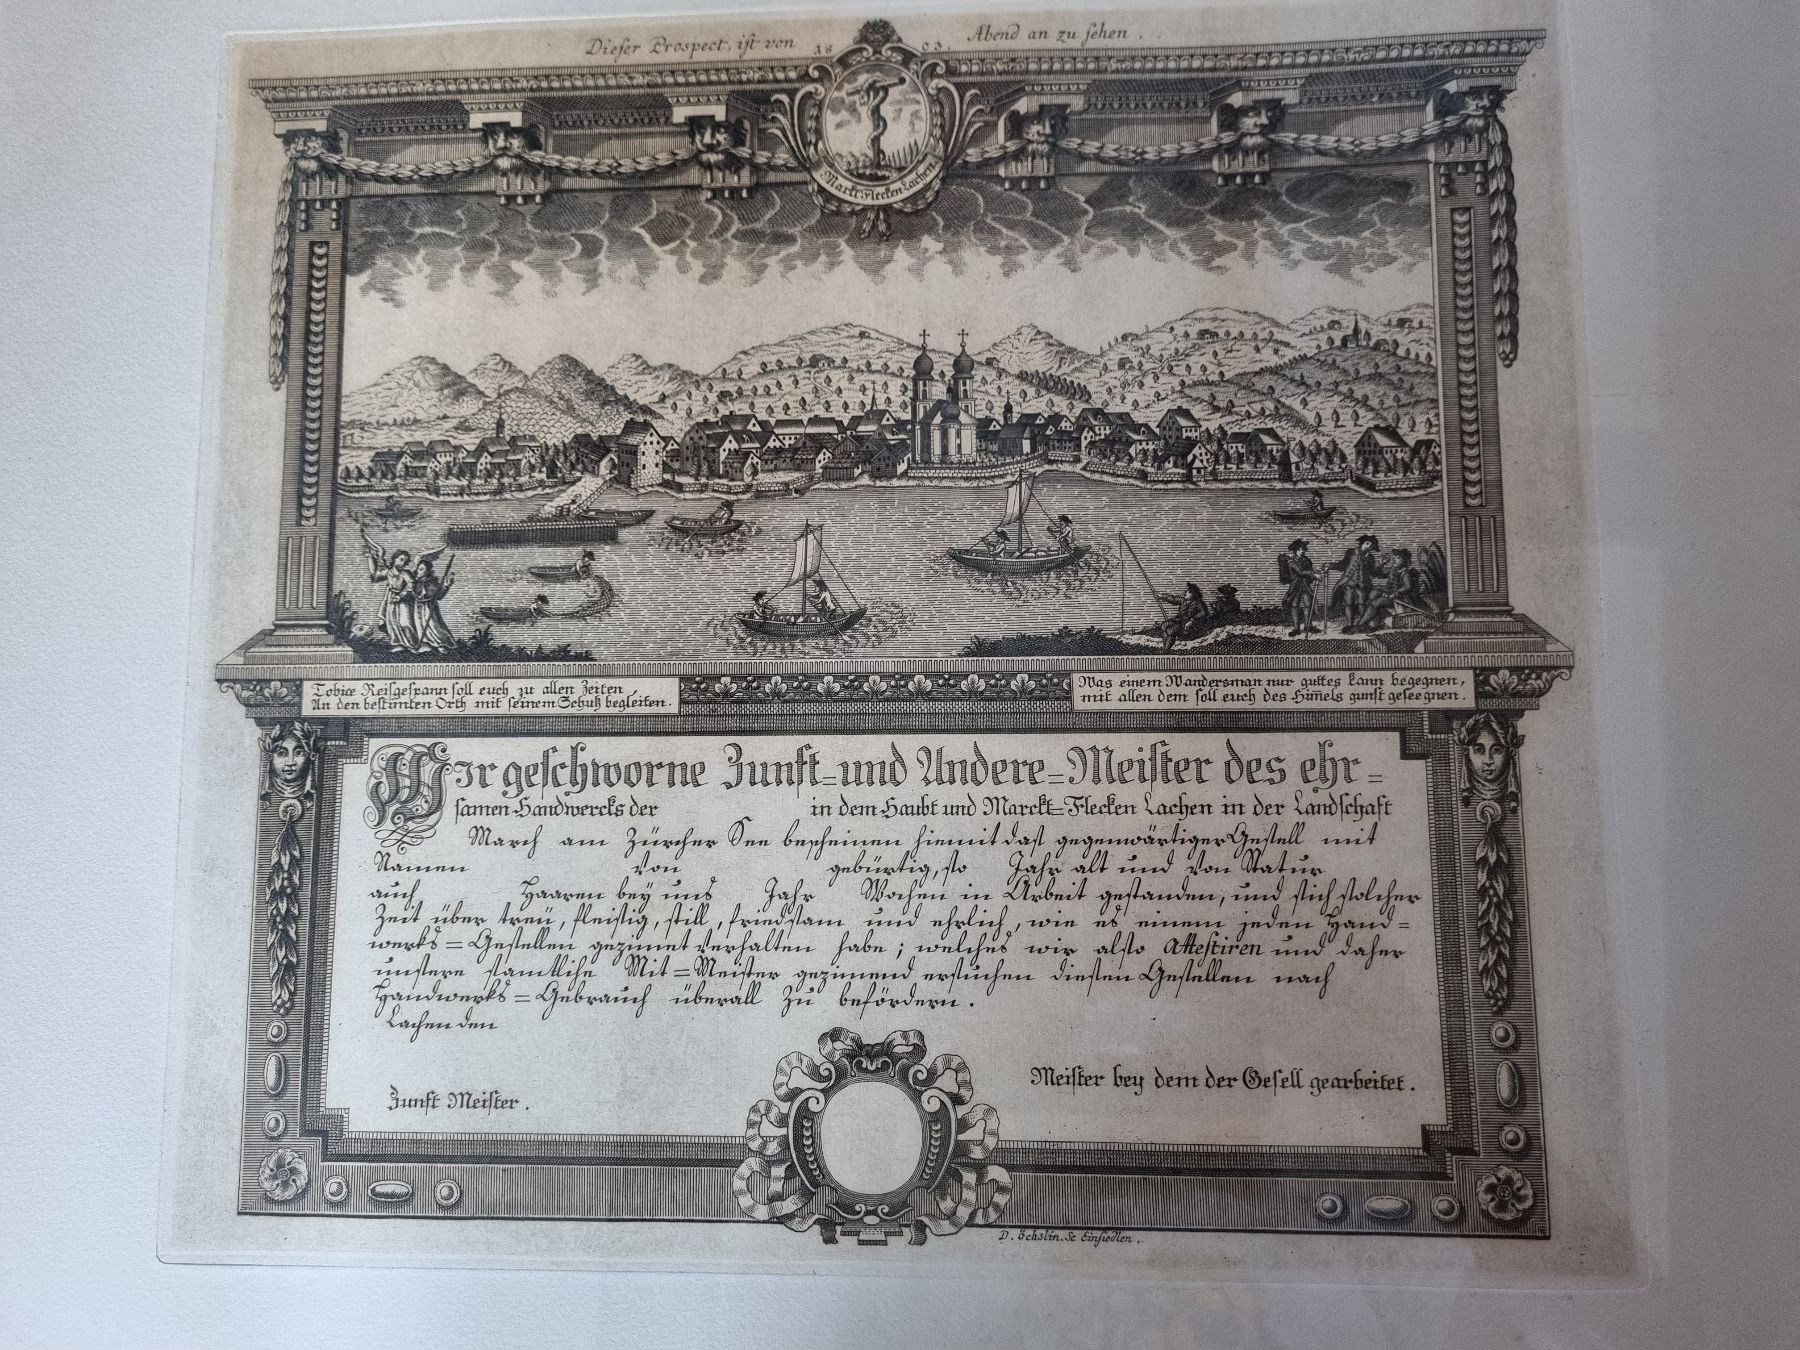 Dieser Prospect, ist von 1803. Abend an zu sehen.
Markt-Flecken Lachen
Tobiæ Reisgespann soll euch zu allen Zeiten,
An den bestimten Orth mit seinem Schutz begleiten.
Was einem Wandersman nur guttes kann begegnen,
mit allen dem soll euch des Him̄els gunst geseegnen.
Wir geschworne Zunft=und Andere=Meister des ehr=
samen Handwercks der in dem Haubt und Marckt=Flecken Lachen in der Landschaft
March am Zürcher See bescheinen hiemit dass gegenwärtiger Gesell mit
Namen von gebürtig, so Jahr alt und von Statur
auch Haaren bey uns Jahr Wochen in Arbeit gestanden, und sich solcher
Zeit über treü, fleissig, still, friedsam und ehrlich, wie es einem jeden Hand=
werks=Gesellen gezimet verhalten habe; welches wir also Attestiren und daher
unsere samtliche Mit=Meister gezimend ersuchen diesen Gesellen nach
Handwerks=Gebrauch überall zu befördern.
Lachen den
Meister bey dem der Gesell gearbeitet.
Zunft Meister.
D. Ochslin. Sc Einsiedlen.